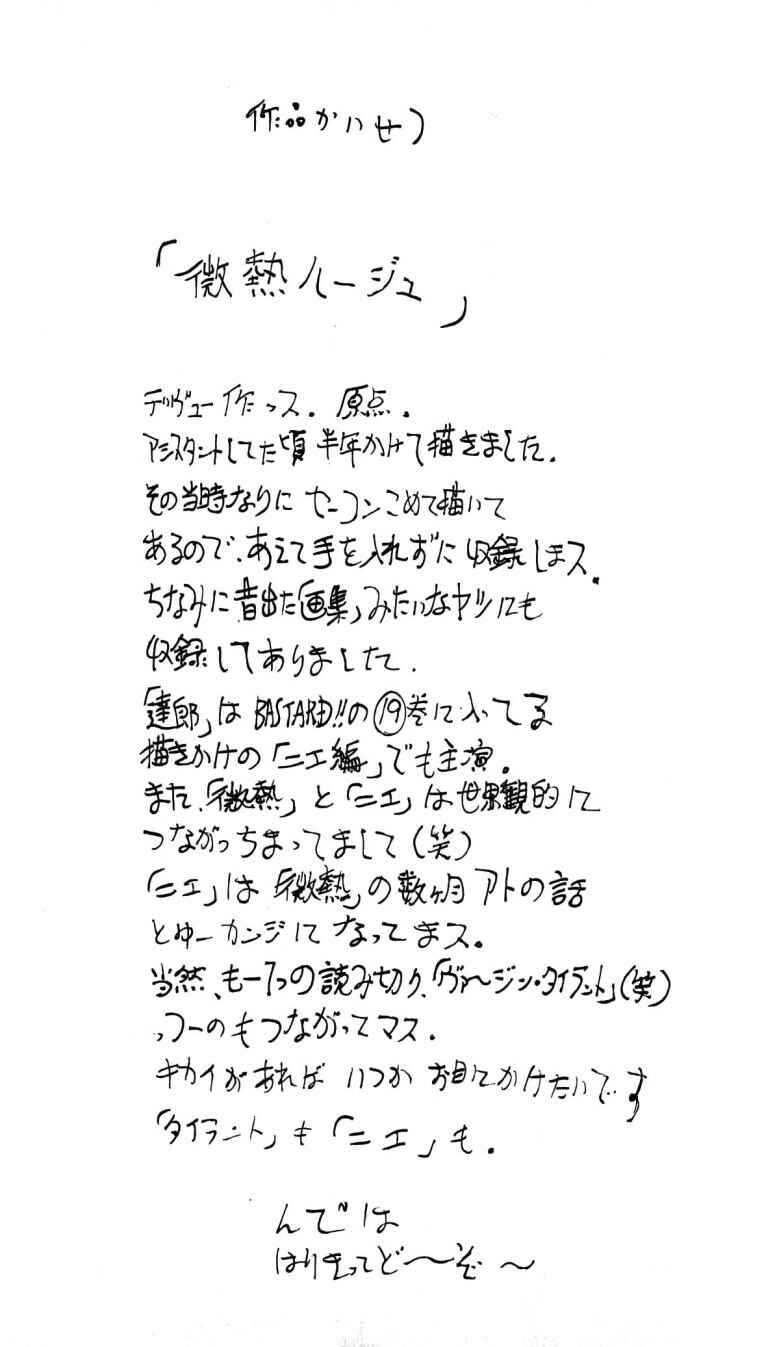 作品かいせつ
「微熱ルージュ」
デヴュー作っス。原点。
アシスタントしてた頃半年かけて描きました。
その当時なりに セーコンこめて描いて
あるので、あえて手を入れずに収録しまス。
ちなみに昔出た「画集」みたいなヤツにも
収録してありました。
「達郎」は BASTARD!!の⑲巻に入ってる
描きかけの「ニエ編」でも主演。
また、「微熱」と「ニエ」は世界観的に
つながっちまってまして(笑)
「ニエ」は「微熱」の数ヶ月アトの話
とゆーカンジになってまス。
当然、も一つの読み切り、「ヴァージン・タイラント」(笑)
っつーのもつながってマス.
キカイがあれば いつか お目にかけたいです
「タイラント」も「ニエ」も.
んでは
はりきってど〜ぞ〜